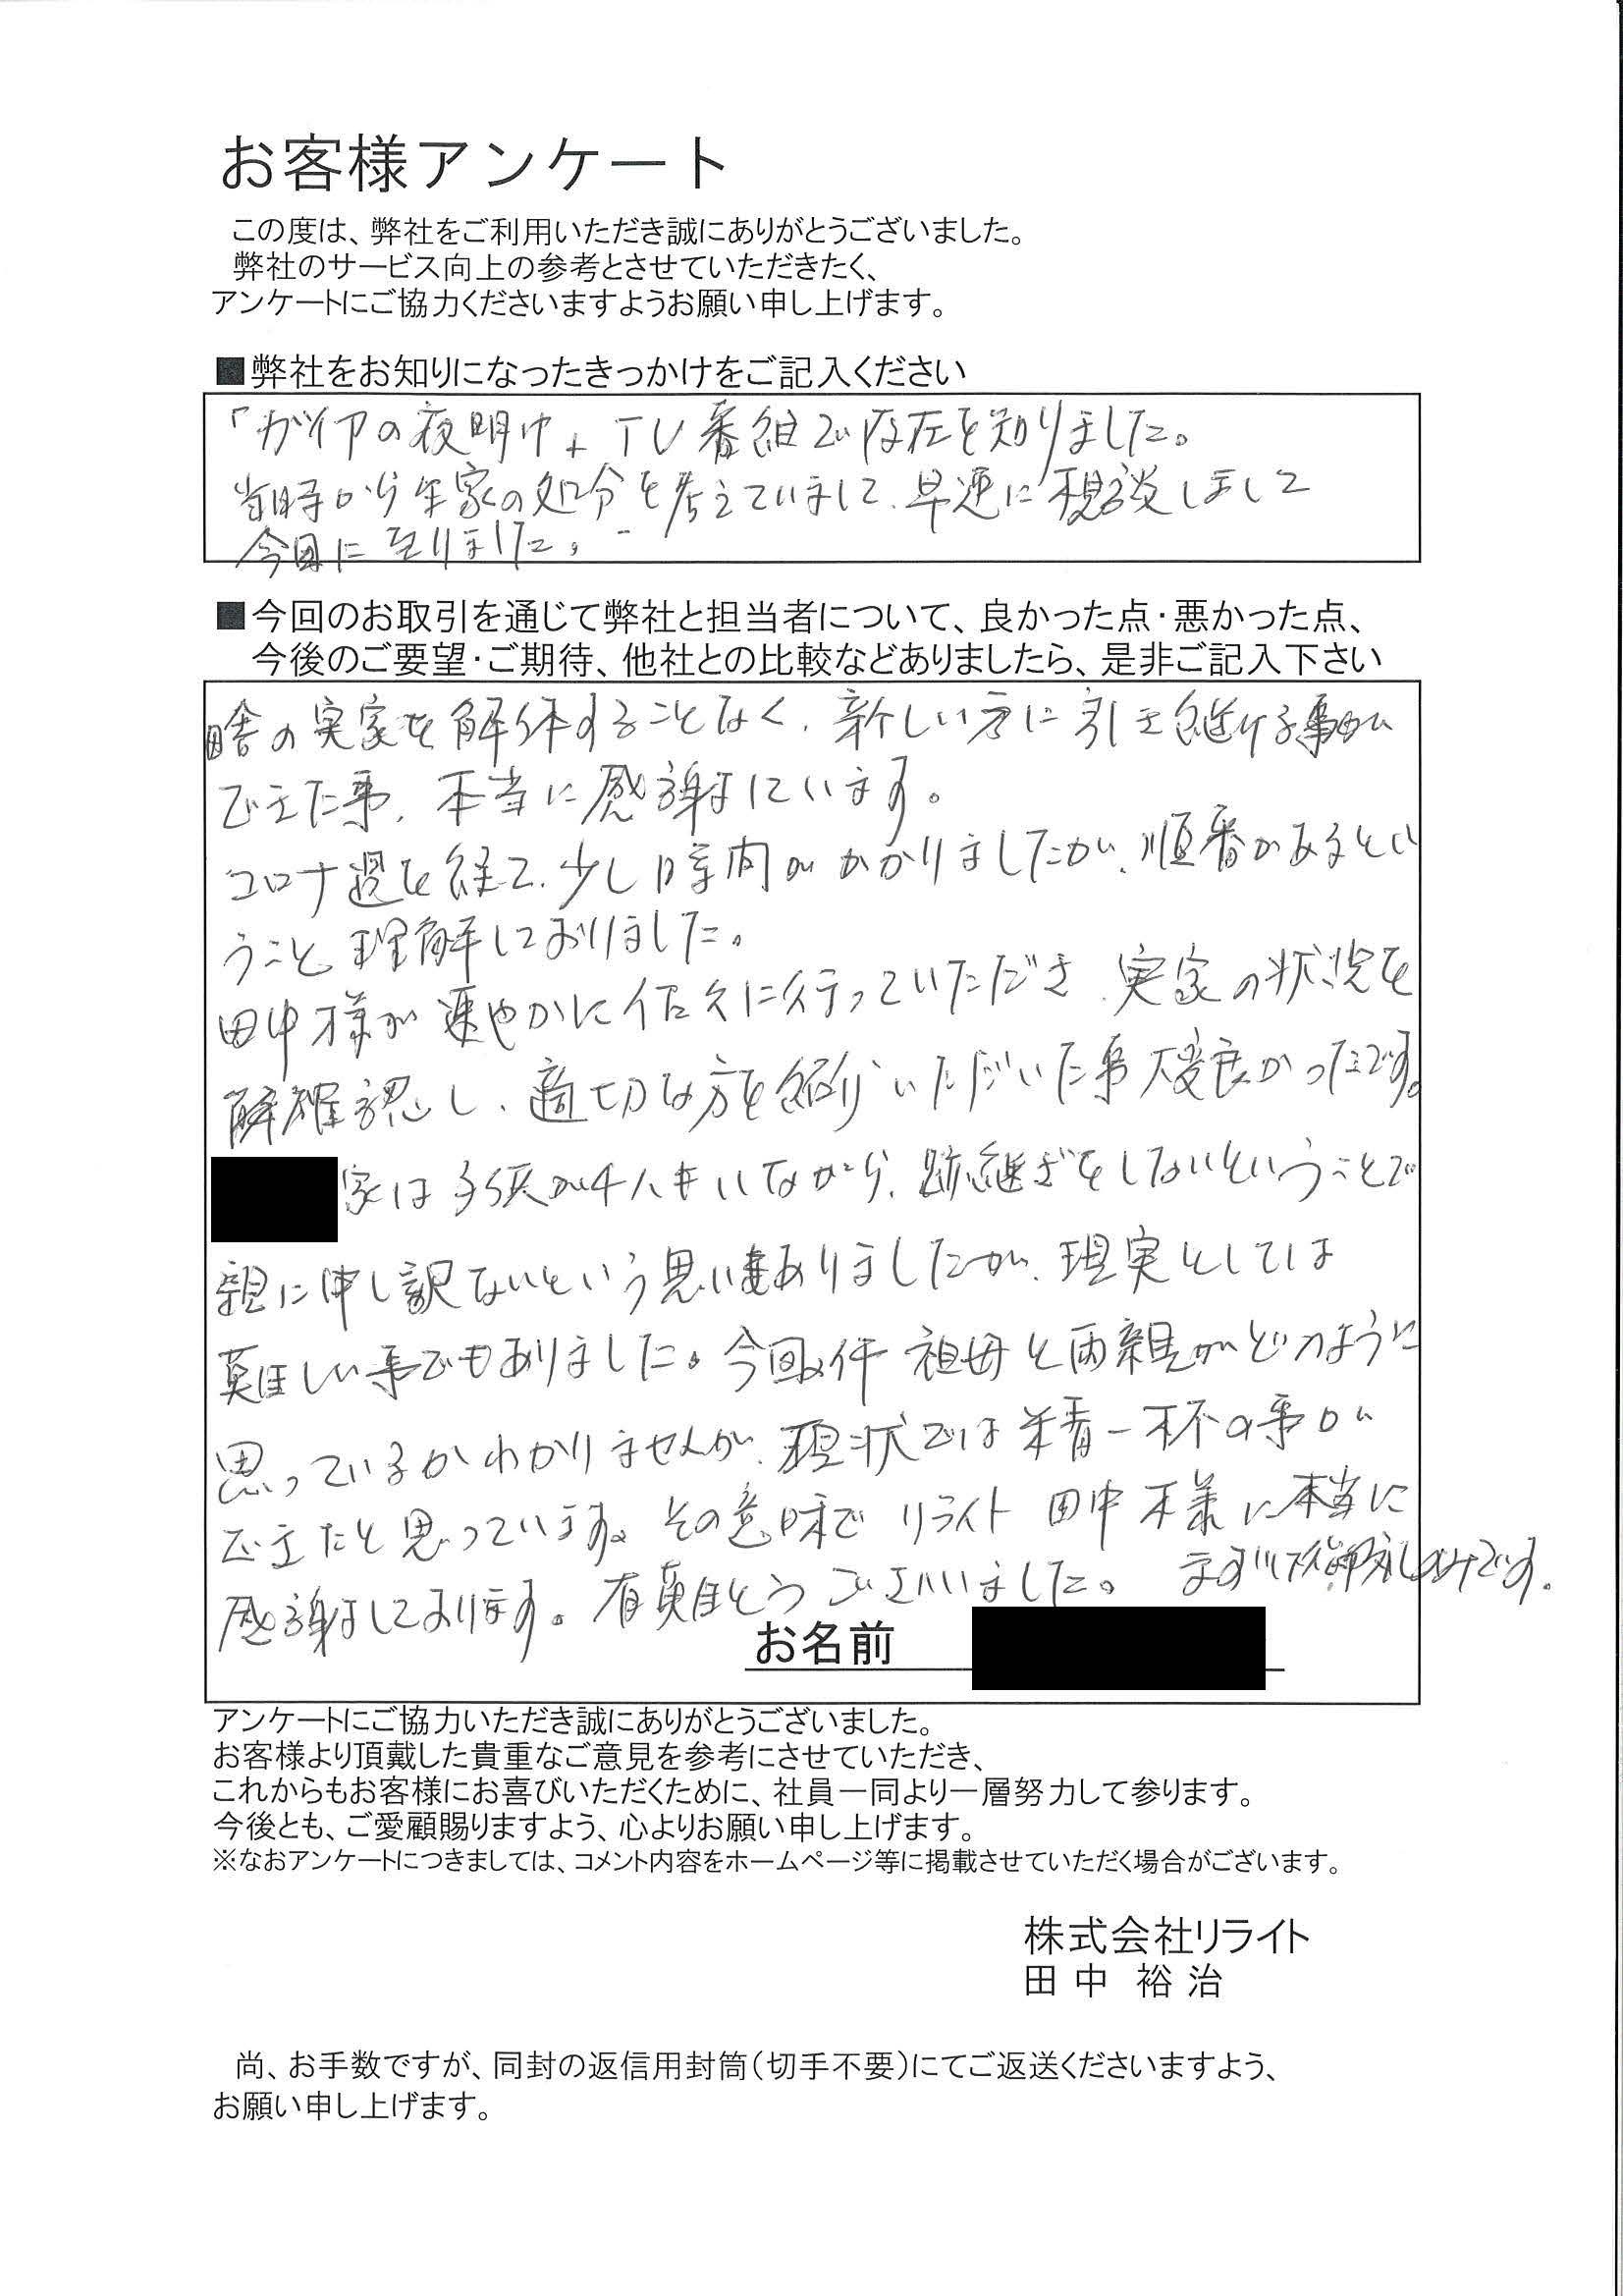 お客様アンケート
この度は、弊社をご利用いただき誠にありがとうございました。
弊社のサービス向上の参考とさせていただきたく、
アンケートにご協力くださいますようお願い申し上げます。
■弊社をお知りになったきっかけをご記入ください
「ガイアの夜明け」TV番組で存在を知りました。
当時から生家の処分を考えていまして、早速に相談しまして
今回に至りました。
■今回のお取引を通じて弊社と担当者について、良かった点・悪かった点、
今後のご要望・ご期待、他社との比較などありましたら、是非ご記入下さい
田舎の実家を解体することなく、新しい方に引き継げる事が
できた事、本当に感謝しています。
コロナ過を経て、少し時間がかかりましたが、順番があるとい
うこと理解しておりました。
田中様が速やかに佐久に行っていただき、実家の状況を
確認し、適切な方を紹介いただいた事大変良かったです。
家は子供が4人もいながら、跡継ぎをしないということで
親に申し訳ないという思いもありましたが、現実としては
難しい事でもありました。今回の件 祖母と両親がどのように
思っているかわかりませんが、現状では精一杯の事が
できたと思っています。その意味で リライト 田中様に本当に
感謝しております。有難とうございました。 まずは御礼のみです。
お名前
アンケートにご協力いただき誠にありがとうございました。
お客様より頂戴した貴重なご意見を参考にさせていただき、
これからもお客様にお喜びいただくために、社員一同より一層努力して参ります。
今後とも、ご愛顧賜りますよう、心よりお願い申し上げます。
※なおアンケートにつきましては、コメント内容をホームページ等に掲載させていただく場合がございます。
株式会社リライト
田中 裕治
尚、お手数ですが、同封の返信用封筒(切手不要)にてご返送くださいますよう、
お願い申し上げます。